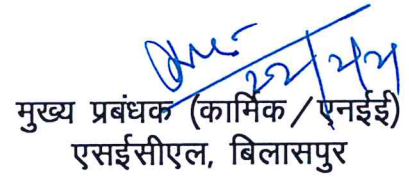 मुख्य प्रबंधक (कार्मिक / एनईई)
एसईसीएल, बिलासपुर